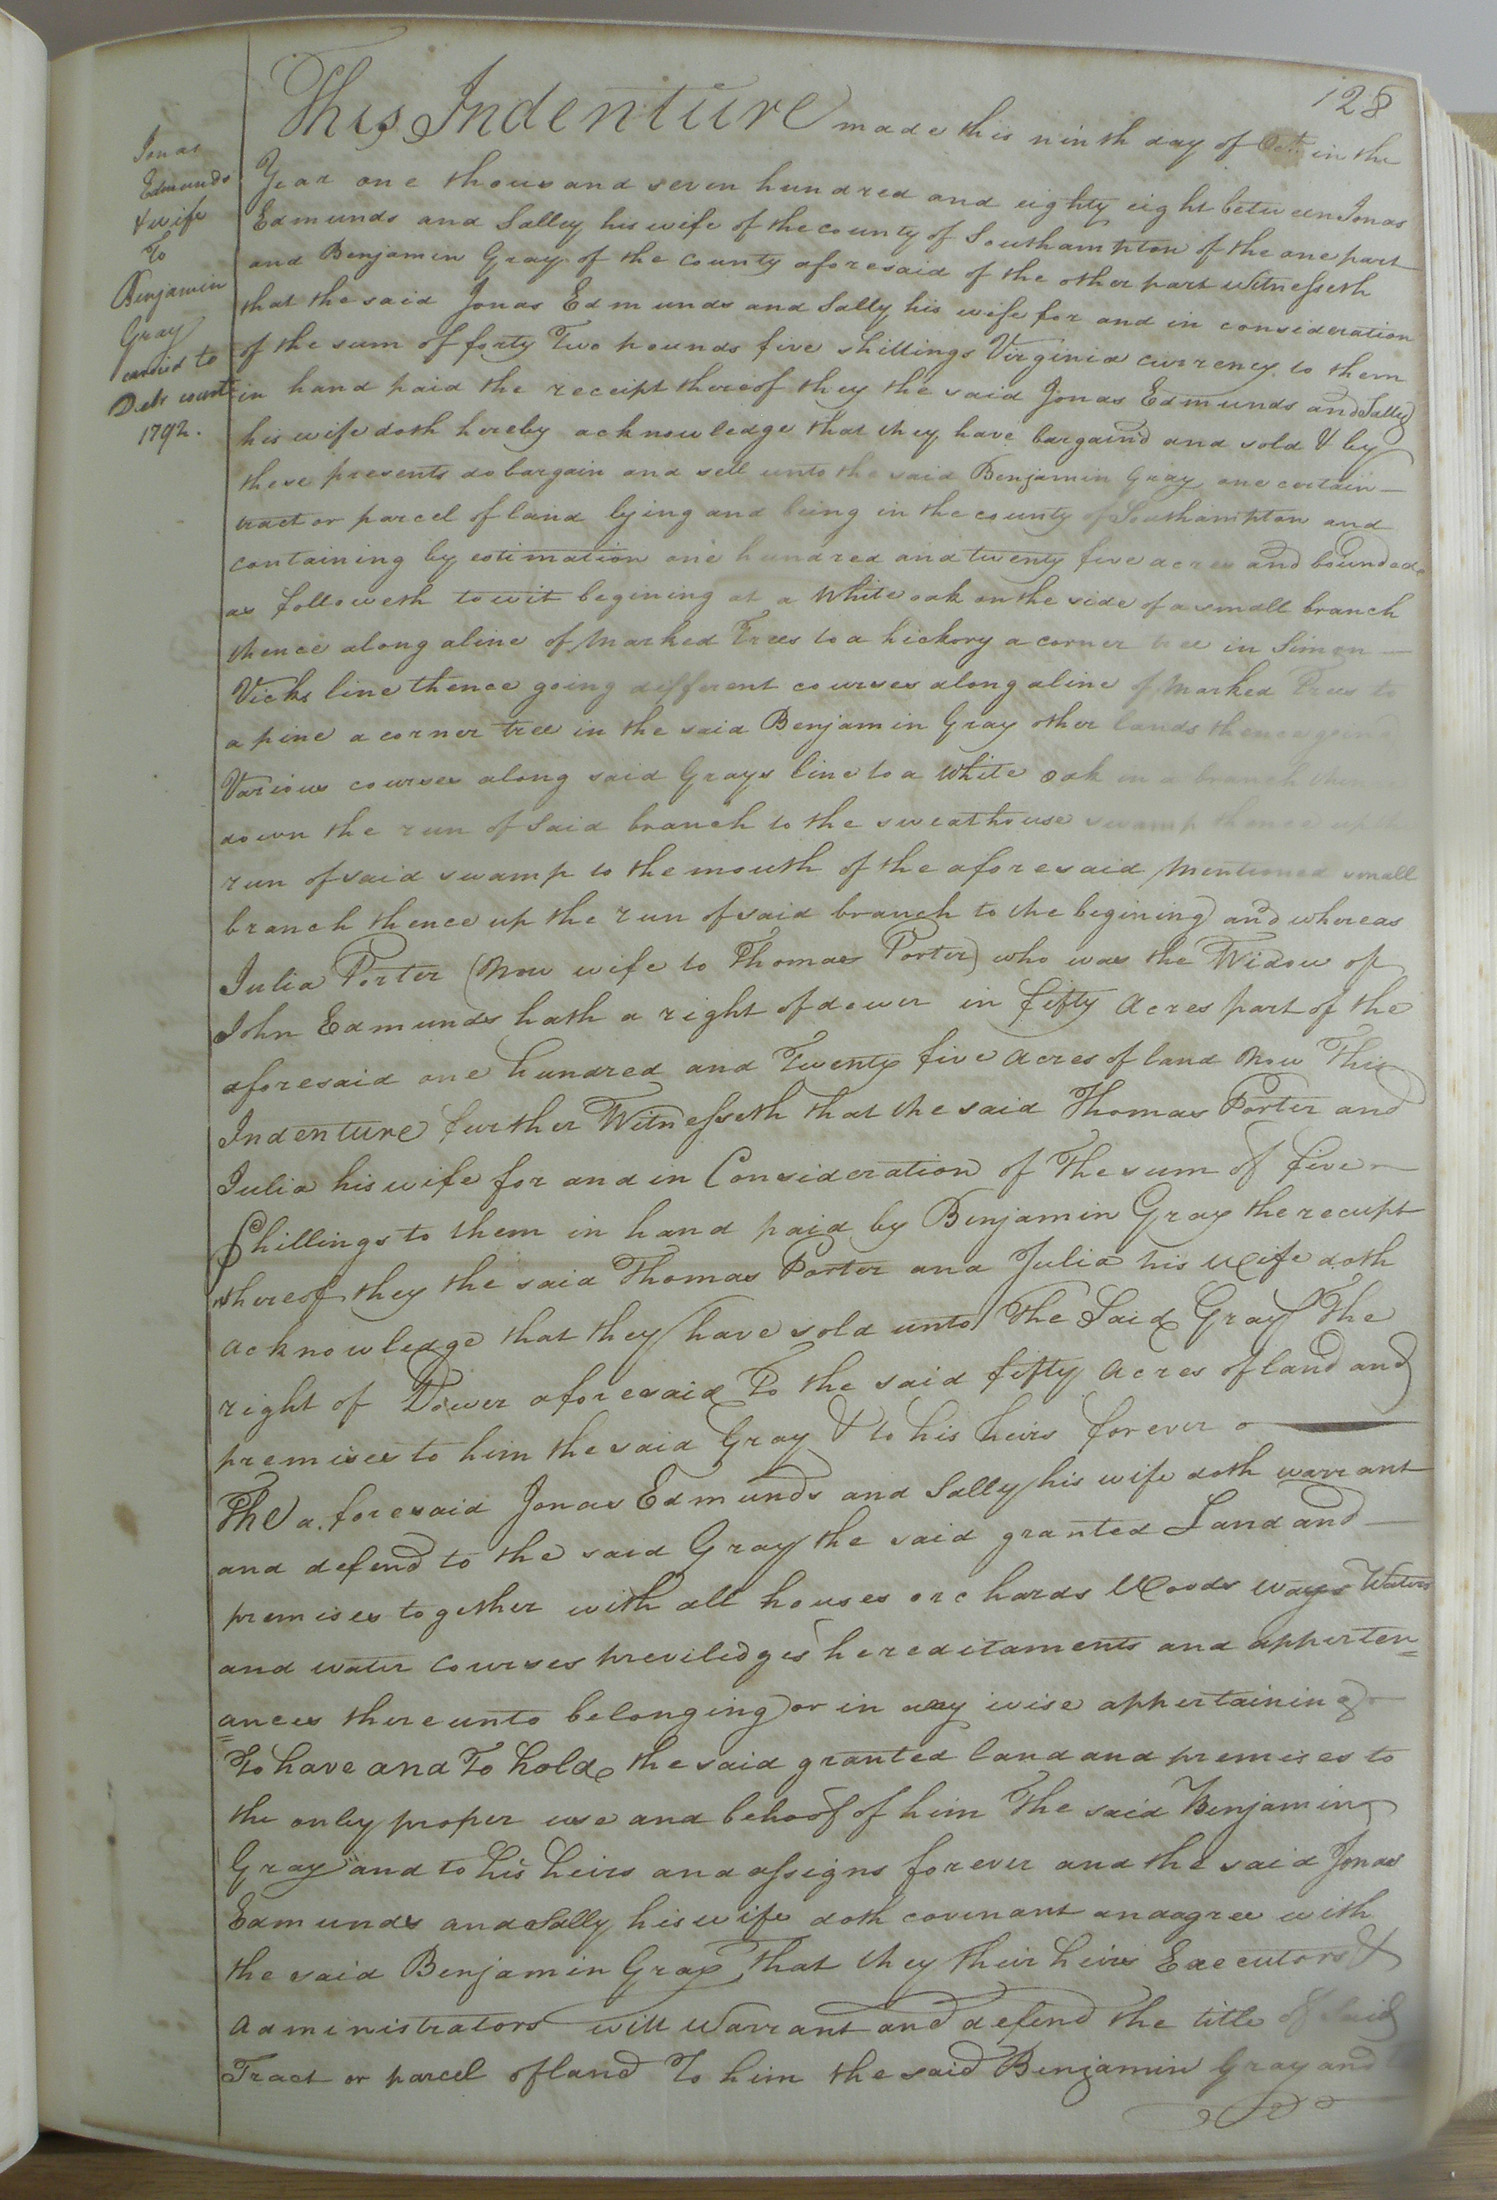 128
Jonas
Edmunds
& wife
To
Benjamin
Gray
carried to
Decr court
1792.
This Indenture made this ninth day of Octr in the
Year one thousand seven hundred and eighty eight between Jonas
Edmunds and Salley his wife of the county of Southampton of the one part
and Benjamin Gray of the county aforesaid of the other part Witnesseth
that the said Jonas Edmunds and Sally his wife for and in consideration
of the sum of forty Two pounds five shillings Virginia currency to them
in hand paid the receipt thereof they the said Jonas Edmunds and Salley
his wife doth hereby acknowledge that they have bargain'd and sold & by
these presents do bargain and sell unto the said Benjamin Gray one certain
tract or parcel of land lying and being in the county of Southampton and
containing by estimation one hundred and twenty five acres and bounded
as followeth towit begining at a White oak on the side of a small branch
thence along a line of Marked Trees to a hickory a corner tree in Simon
Vicks line thence going different courses along a line of Marked Trees to
a pine a corner tree in the said Benjamin Gray other lands thence going
Various courses along said Grays line to a White oak in a branch then
down the run of Said branch to the sweathouse swamp thence up
run of said swamp to the mouth of the aforesaid Mentioned small
branch thence up the run of said branch to the begining and whereas
Julia Porter (Now wife to Thomas Porter) who was the Widow of
John Edmunds hath a right of dower in fifty Acres part of the
aforesaid one hundred and Twenty five Acres of land Now This
Indenture further Witnesseth that the said Thomas Porter and
Julia his wife for and in Consideration of The sum of five
Shillings to them in hand paid by Benjamin Gray the receipt
thereof they the said Thomas Porter and Julia his Wife doth
acknowledge that they have sold unto The Said Gray The
right of Dower aforesaid To the said fifty Acres of land and
premises to him the said Gray & to his heirs forever
The aforesaid Jonas Edmunds and Sally his wife doth warrant
and defend to the said Gray the said granted Land and
premises together with all houses orchards Woods ways Waters
and water Courses previledges hereditaments and apperten=
=ances thereunto belonging or in any wise appertaining
To have and To hold the said granted land and premises to
the only proper use and behoof of him The said Benjamin
Gray and to his heirs and assigns forever and the said Jonas
Edmunds and Sally his wife doth covenant and agree with
the said Benjamin Gray that they their heirs Executors &
Administrators will Warrant and defend the title of Said
Tract or parcel of land To him the said Benjamin Gray and